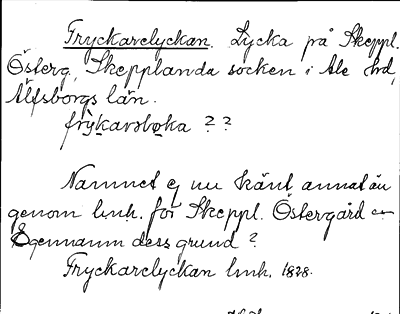 Fryckarelyckan. Lycka på Skeppl.
Österg, Skepplanda socken i Ale hd,
Älfsborgs län.
??
Namnet ej nu känt annat än
genom lmh. för Skeppl. Östergård
Egennamn dess grund?
Fryckarelyckan lmh. 1828.